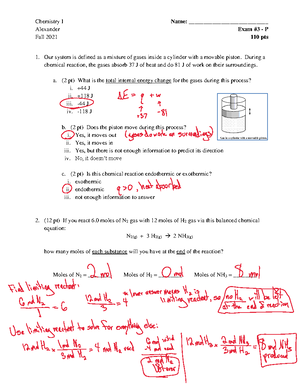 Chemistry I Name:
Alexander Exam #3 - P
Fall 2021 110 pts
1. Our system is defined as a mixture of gases inside a cylinder with a movable piston. During a
chemical reaction, the gases absorb 37 J of heat and do 81 J of work on their surroundings.
a. (2 pt) What is the total internal energy change for the gases during this process?
i. +44 J
ii. +118 J
iii. -44 J
iv. -118 J
ΔE = q + w
+37 -81
b. (2 pt) Does the piston move during this process?
i. Yes, it moves out (gases do work on surroundings)
ii. Yes, it moves in
iii. Yes, but there is not enough information to predict its direction
iv. No, it doesn't move
c. (2 pt) Is this chemical reaction endothermic or exothermic?
i. exothermic
ii. endothermic q>0, heat absorbed
iii. not enough information
2. (12 pt) If you react 6.0 moles of N2 gas with 12 moles of H2 gas via this balanced chemical
equation:
N2(g) + 3 H2(g) → 2 NH3(g)
how many moles of each substance will you have at the end of the reaction?
Moles of N2 = 2 mol Moles of H2 = 0 mol Moles of NH3 = 8 mol
Find limiting reactant:
6 mol N2 / 1 = 6
12 mol H2 / 3 = 4
lower other means H2 is limiting reactant, so no H2 will be left at the end of reaction
Use limiting reactant to solve for everything else:
12 mol H2 × 1 mol N2 / 3 mol H2 = 4 mol N2 used
2 mol N2
12 mol H2 × 2 mol NH3 / 3 mol H2 = 8 mol NH3 produced